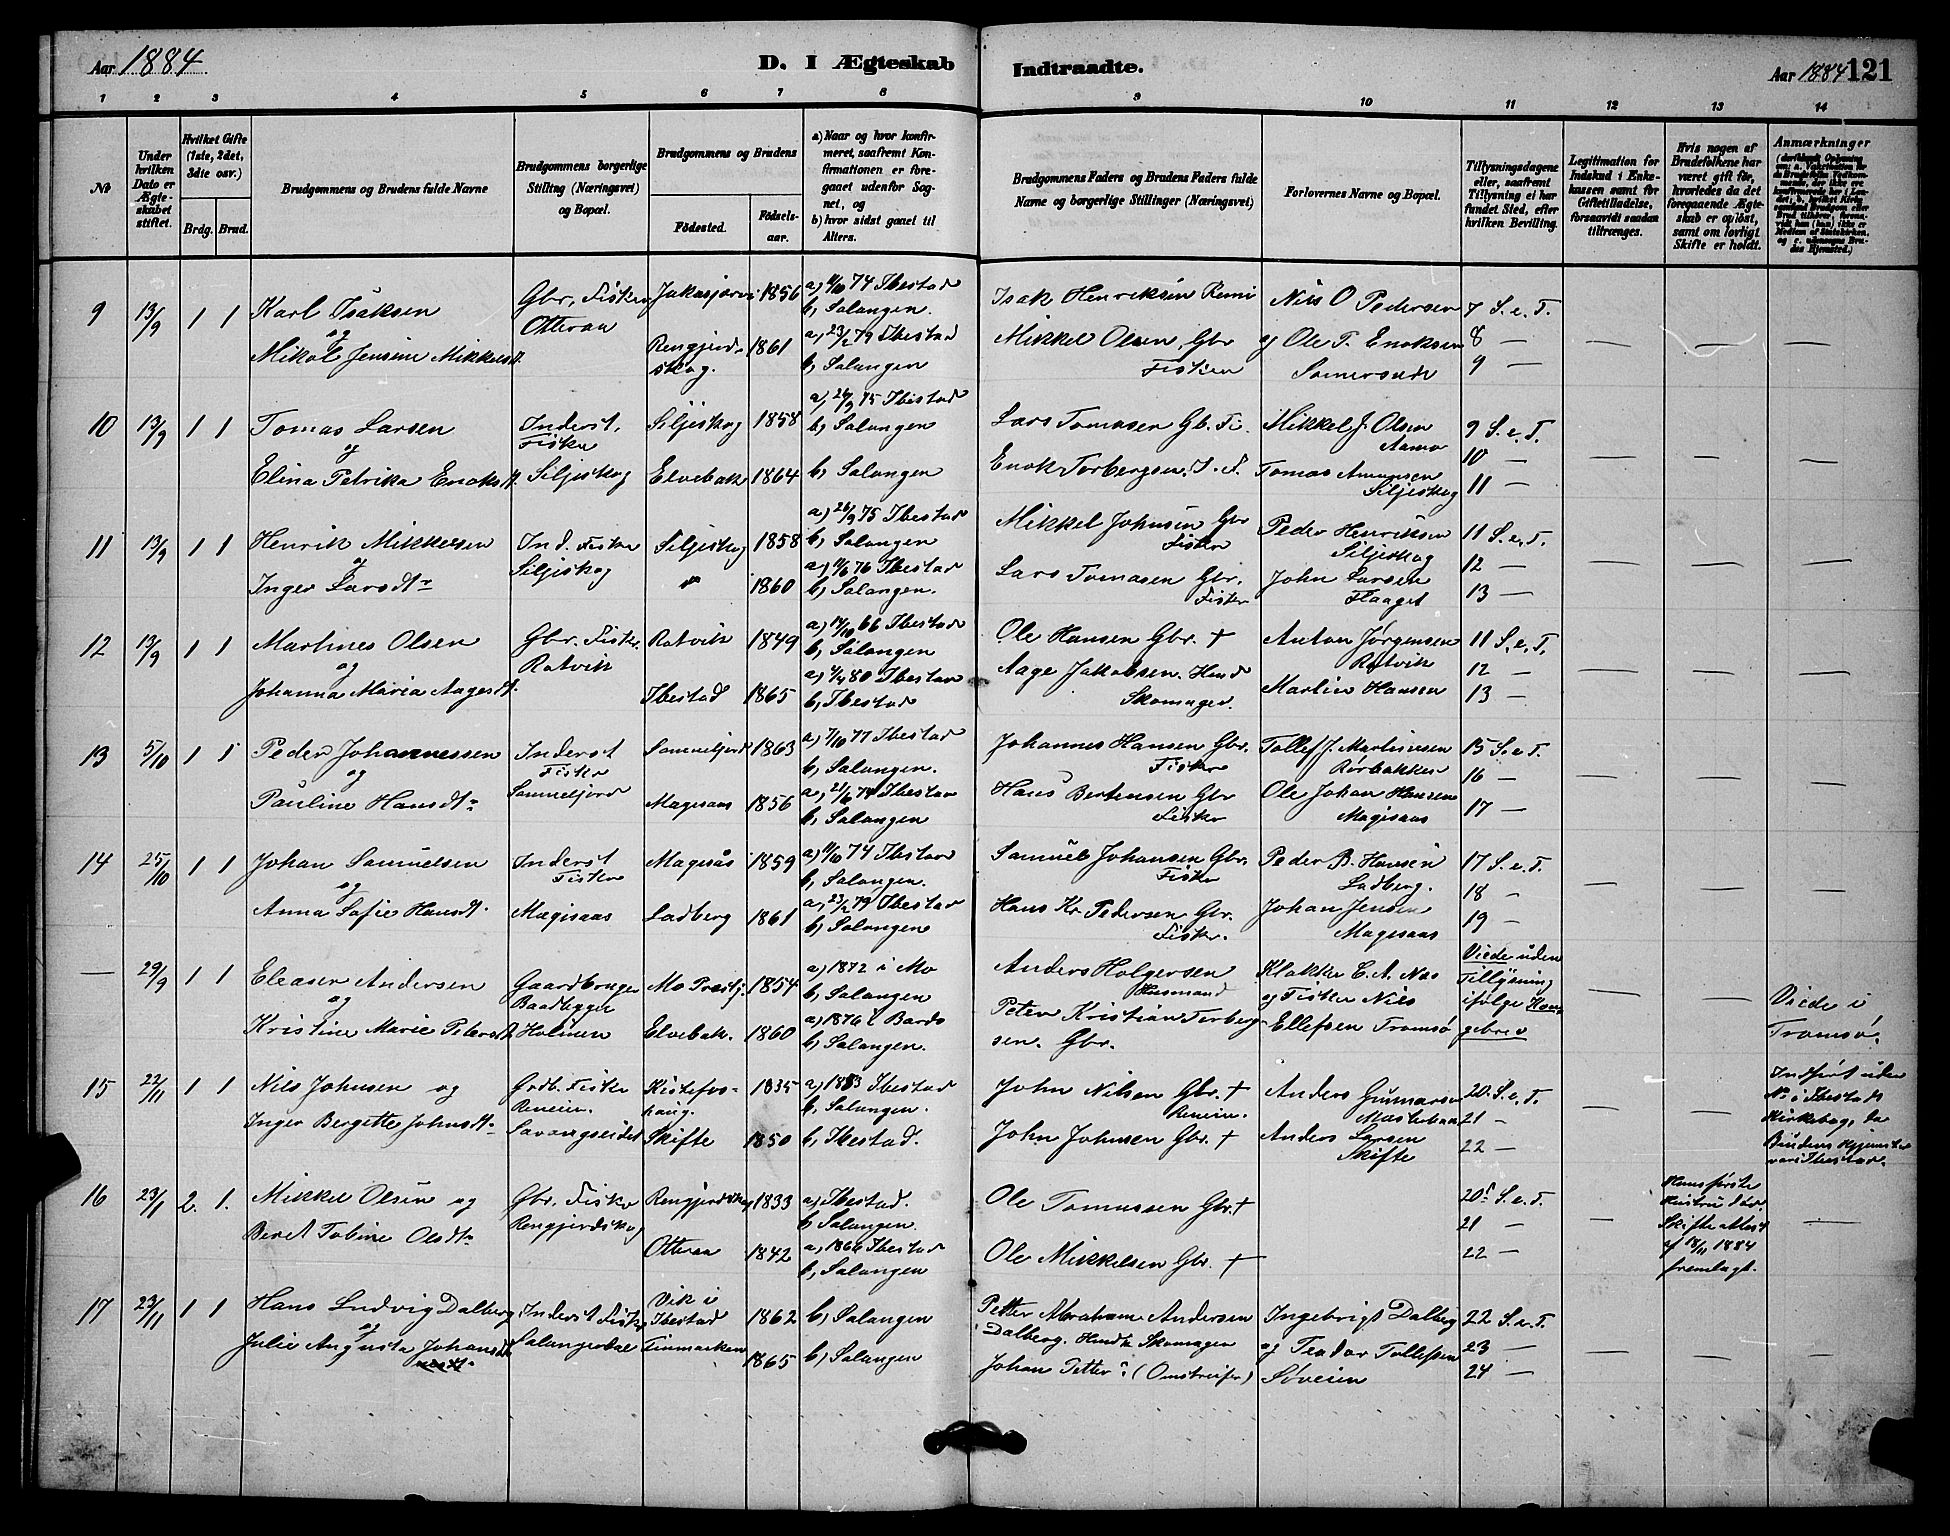 Aar 1884
D. I Ægteskab Indtraadte.
Aar 1884 121
1 2 3 4 5 6 7 8 9 10 11 12 13 14
No
Under hvilken Dato er Ægteskabet stiftet.
Hvilket Gifte (1ste, 2det, 3die osv.)
Brdg. Brud.
Brudgommens og Brudens fulde Navne
Brudgommens borgerlige Stilling (Næringsvei) og Bopæl.
Brudgommens og Brudens
Fødested.
Fødselsaar.
a) Naar og hvor konfirmeret, saafremt Konfirmationen er foregaaet udenfor Sognet, og
b) hvor sidst gaaet til Alters.
Brudgommens Faders og Brudens Faders fulde Navne og borgerlige Stillinger (Næringsvei)
Forlovernes Navne og Bopæl.
Tillysningsdagene eller, saafremt Tillysning ei har fundet Sted, efter hvilken Bevilling.
Legitimation for Indskud i Enkekassen samt for Giftetilladelse, forsaavidt saadan tiltrænges.
Hvis nogen af Brudefolkene har været gift før, hvorledes da det foregaaende Ægteskab er opløst, samt om lovligt Skifte er holdt.
Anmærkninger
9 13/9 1 1 Karl Isaksen og Mikol Jensine Mikkelsd. Gbr. Fisker Otteraa
Jukasjervi 1856 a) 11/10 74 Ibestad b) Salangen.
Rengjerdskog. 1861 a) 23/2 79 Ibestad b) Salangen
Isak Henriksen
Mikkel Olsen Gbr Fisker
Nils O Pedersen og Ole T. Enoksen
7 S. e. T. 8 — 9 — — — —
10 13/9 1 1 Tomas Larsen og Elina Petrika Enoksd. Inderst, Fisker Siljeskog
Siljeskog 1858 a) 26/9 75 Ibestad b) Salangen
Elvebak 1864 b) Salangen
Lars Tomasen Gb. Fi.
Enok Torbergsen. I. F.
Mikkel J. Olsen
Tomas Amundsen Siljeskog
9 S. e. T. 10 — 11 — — — —
11 13/9 1 1 Henrik Mikkelsen og Inger Larsdtr Ind. Fisker Siljeskog
Siljeskog 1858 a) 26/9 75 Ibestad b) Salangen
" 1860 a) 11/6 76 Ibestad b) Salangen.
Mikkel Johnsen Gbr Fisker
Lars Tomasen Gbr. Fisker
Peder Henriksen Siljeskog
John Larsen Flaaget
11 S. e. T. 12 — 13 — — — —
12 13/9 1 1 Martines Olsen og Johanna Maria Aagesd. Gbr. Fisker. Rotvik
Rotvik 1849 a) 14/10 66 Ibestad b) Salangen
Ibestad 1865 a) 4/4 80 Ibestad b) Ibestad
Ole Hansen Gbr. †
Aage Jakobsen. Hmd Skomager.
Anton Jørgensen Rotvik
Martin Hansen
11 S. e. T. 12 — 13 — — — —
13 5/10 1 1 Peder Johannessen og Pauline Hansdtr Inderst Fisker Sammelfjord
Sammelfjord 1863 a) 7/10 77 Ibestad b) Salangen.
Magesaas 1856 a) 21/6 74 Ibestad b) Salangen
Johannes Hansen Gbr. Fisker
Hans Bertensen Gbr Fisker
Tollef J. Martinesen Rørbakken
Ole Johan Hansen Magisaas
15 S. e. T. 16 — 17 — — — —
14 25/10 1 1 Johan Samuelsen og Anna Sofie Hansdt. Inderst Fisker Magisaas
Magesås 1859 a) 11/10 74 Ibestad b) Salangen.
Ladberg 1861 a) 23/2 79 Ibestad b) Salangen
Samuel Johansen Gbr. Fisker
Hans Kr Pedersen Gbr. Fisker.
Peder B. Hansen Ladberg.
Johan Jensen Magesaas
17 S. e. T. 18 — 19 — — — —
— 29/9 1 1 Eleaser Andersen og Kristine Marie Petersd. Gaardbruger Baadbygger Holmen
Mo Præstgj. 1854 a) 1872 i Mo b) Salangen
Elvebak. 1860 a) 1876 i Bardo b) Salangen.
Anders Holgersen Husmand
Peter Kristian Torbergsen. Gbr.
Klokker C. A. Nas og Fisker Nils Ellefsen Tromsø
Viede uden Tillysning ifølge Kongebrev — —
Viede i Tromsø.
15 22/11 1 1 Nils Johnsen og Inger Bergitte Johnsdtr Grdb. Fisker Reneier. Savangseidet
Kistefoshaug. 1835 a) 1853 Ibestad b) Salangen.
Skifte 1850 b) Ibestad.
John Nilsen Gbr. † Reneier.
John Johnsen Gbr. †
Anders Gunnarsen
Anders Larsen Skifte
20. S. e. T 21 — 22 — — —
Indført uden No i Ibestads Kirkebog, da Brudens Hjemsted var i Ibestad.
16 23/1 2. 1. Mikkel Olsen og Beret Tobine Olsdtr Gbr. Fisker Rengjerdskog
Rengjerdskog 1833 a) Ibestad. b) Salangen.
Otteraa 1842 a) 1866 Ibestad b) Salangen
Ole Tomassen Gbr. †
Ole Mikkelsen Gbr. †
20 S. e. T. 21 — 22 — —
Hans første Hustru død. Skifteattest af 18/11 1884 fremlagt. —
17 23/11 1 1 Hans Ludvig Dalberg og Julie Augusta Johansdt Inderst Fisker Salangsdal
Vik i Ibestad 1862 b) Salangen
Finmarken 1865 b) Salangen
Petter Abraham Andersen Dalberg. Skomager
Johan Petter (Omstreifer)
Ingebrigt Dalberg og Teodor Tollefsen Søveien
22 S. e. T. 23 — 24 — — — —